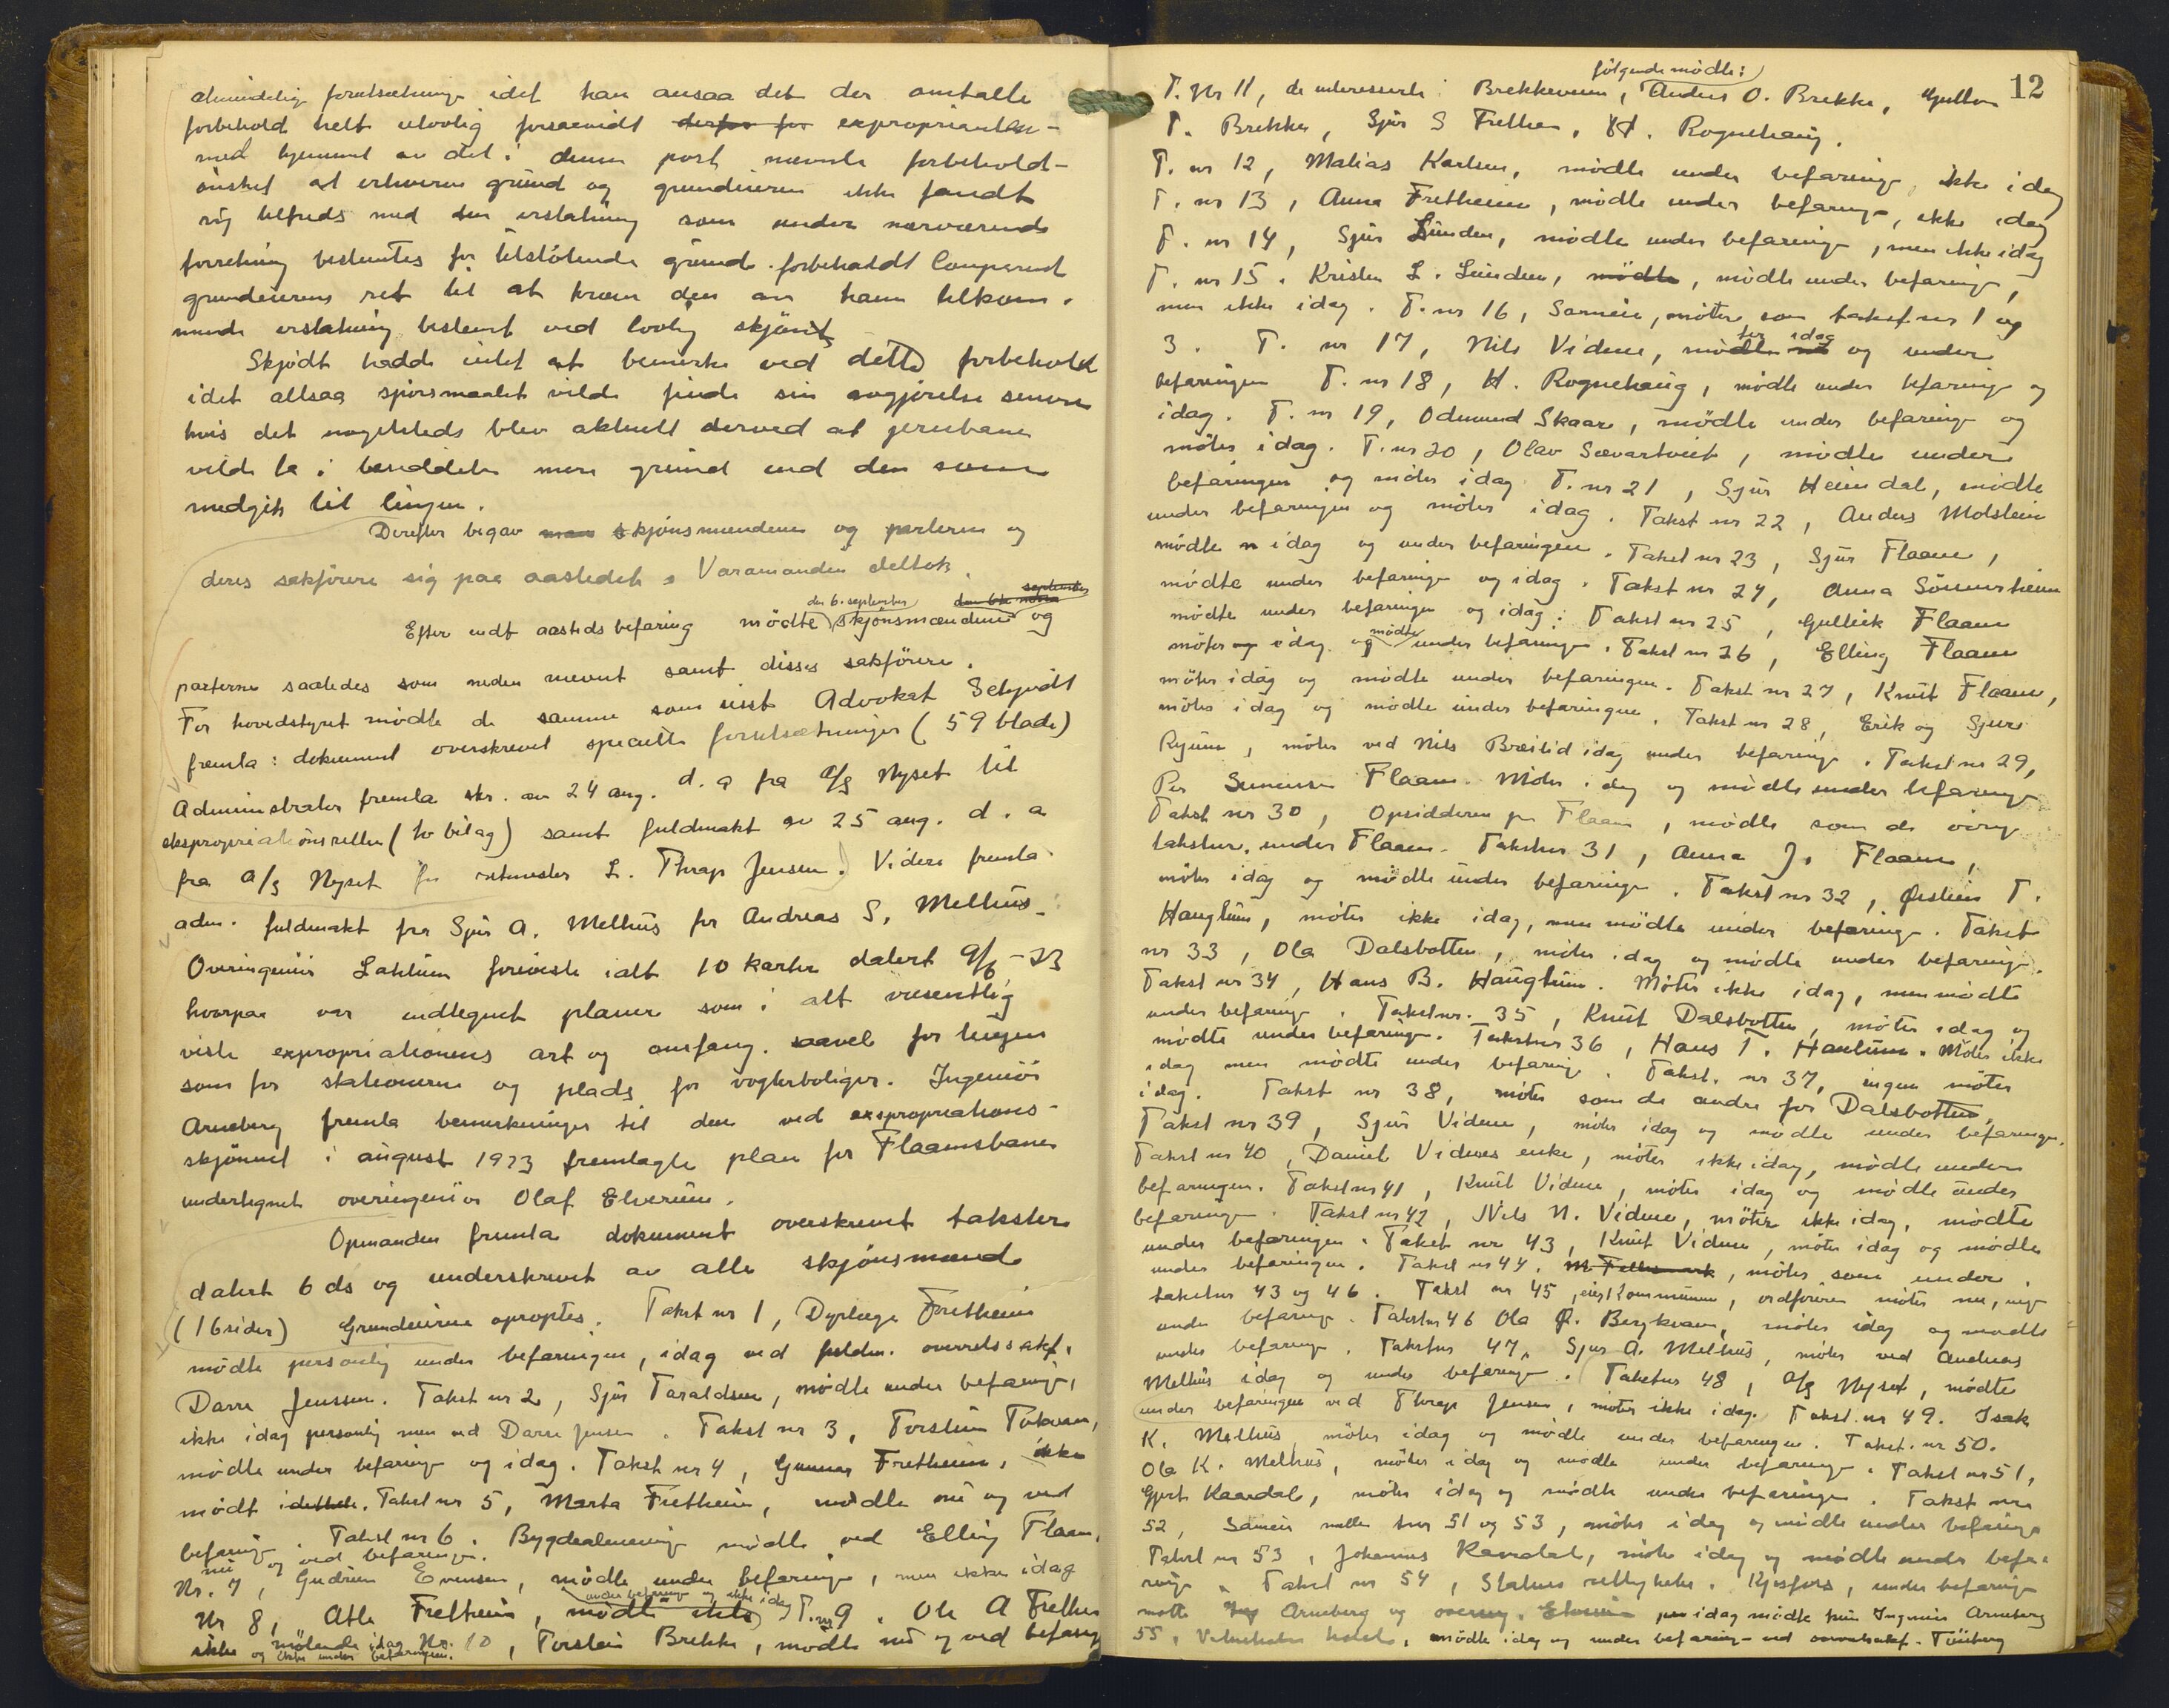 almindelige forutsætninger idet han ansaa det der omtalte
forbehold helt ulovlig forsaavidt derfor for expropriaten -
med hjemmel av det i denne post nævnte forbehold -
ønsket at erhverve grund og grundeieren ikke fandt
sig tilfreds med den erstatning som under nærværende
forretning bestemtes for tilstötende grund. forbeholdt Comparent
grundeierens ret til at kræve den av ham tilkom-
mende erstatning bestemt ved lovlig skjönt
Skjödt hadde intet at bemerke ved dette forbehold
idet altsaa spörsmaalet vilde finde sin avgjörelse senere
hvis det nogetsteds blev aktuelt derved at jernbanen
vilde ta i besiddelse mere grund end den som
medgik til linjen.
Derefter begav man skjönsmændene og parterne og
deres sakförere sig paa aastedet. Varamanden deltok.
Efter endt aastedsbefaring mödte den 6. september skjönsmændene den 6te september og
parterne saaledes som neden nævnt samt disses sakförere.
For hovedstyret mödte de samme som sidst Advokat Schjødt
fremla: dokument overskrevet specielle forutsætninger (59 blade)
Administrator fremla skr. av 24 aug. d. a fra A/S Nyset til
ekspropriationsretten (to bilag) samt fuldmakt av 25 aug. d. a
fra A/S Nyset for L. Thrap Jensen. Videre fremla
adm. fuldmakt fra Sjur A. Melhus for Andreas S. Melhus.
Overingeniör Lahlum foreviste ialt 10 karter datert 9/6-23
hvorpaa var indtegnet planer som i alt væsentlig
viste expropriationens art og omfang. saavel for linjen
som for stationerne og plads for vogterboliger. Ingeniör
Arneberg fremla bemerkninger til den ved expropriations-
skjönnet i august 1923 fremlagte plan for Flaamsbanen
undertegnet overingeniör Olaf Elverum.
Opmanden fremla dokument overskrevet takster
datert 6 ds og underskrevet av alle skjönsmænd
(16 sider) Grundeierne oproptes. Takst nr 1, Dyrlæge Fretheim
mödte personlig under befaringen, idag ved fuldm. overretssakf.
Darre Jenssen. Takst nr 2, Sjur Taraldsen, mödte under befaring,
ikke idag personlig men ved Darre Jensen. Takst nr 3, Torstein Tokvam,
mödte under befaring og idag. Takst nr 4, Gunnar Fretheim, ikke
mödt idethele. Takst nr 5, Marta Fretheim, mödte nu og ved
befaring. Takst nr 6. Bygdealmenning mödte ved Elling Flaam,
nu og ved befaringen.
Nr. 7, Gudrun Evensen, mödte under befaring, men ikke idag
Nr 8, Atle Fretheim, mödte ikke under befaring og ikke idag T. nr 9. Ole A Fretheim
ikke mötende idag og ikke under befaringen. Nr. 10, Torstein Brekke, mödte nu og ved befaring
12
T. Nr 11, de interesserte i Brekkeveien, følgende mødte: Anders O. Brekke, Guttorm
T. Brekke, Sjur S Frethem, H. Rognehaug.
T. nr 12, Matias Karlsen, mödte under befaring, ikke idag
T. nr 13, Anna Fretheim, mödte under befaring, ikke idag
T. nr 14, Sjur Lunden, mödte under befaring, men ikke idag
T. nr 15. Kristen L. Lunden, mödte, mödte under befaring,
men ikke idag. T. nr 16, Sameie, möter som takst nr 1 og
3. T. nr 17, Nils Vidme, möter idag og under
befaringen T. nr 18, H. Rognehaug, mödte under befaring og
idag. T. nr 19, Odmund Skaar, mödte under befaring og
möter idag. T. nr 20, Olav Sævartveit, mödte under
befaringen og möter idag T. nr 21, Sjur Heimdal, mödte
under befaringen og möter idag. Takst nr 22, Anders Molstein
mödte n idag og under befaringen. Takst nr 23, Sjur Flaam,
mödte under befaring og idag. Takst nr 24, Anna Sönnerheim
mödte under befaringen og idag. Takst nr 25, Gullick Flaam
möter og idag og mödte under befaring. Takst nr 26, Elling Flaam
möter idag og mödte under befaringen. Takst nr 27, Knut Flaam,
möter idag og mödte under befaringen. Takst nr 28, Erik og Sjur
Ryum, möter ved Nils Breilid idag under befaring. Takst nr 29,
Per Flaam. Möter idag og mödte under befaring
Takst nr 30, Opsidderne paa Flaam, mödte som de övrige
takstnr. under Flaam. Takstnr 31, Anna J. Flaam,
möter idag og mödte under befaring. Takst nr 32, Øistein T.
Hauglum, möter ikke idag, men mödte under befaring. Takst
nr 33, Ola Dalsbotten, möter idag og mödte under befaring.
Takst nr 34, Hans B. Hauglum. Möter ikke idag, men mödte
under befaring. Takstnr. 35, Knut Dalsbotten, möter idag og
mödte under befaring. Takstnr 36, Hans T. Haulum. Möter ikke
idag men mödte under befaring. Takst. nr 37, ingen möter
idag. Takst nr 38, möter som de andre for Dalsbotten,
Takst nr 39, Sjur Vidme, möter idag og mödte under befaringen.
Takst nr 40, Daniel Vidmes enke, möter ikke idag, mödte under
befaringen. Takst nr 41, Knut Vidme, möter idag og mödte under
befaringen. Takst nr 42, Nils N. Vidme, möter ikke idag, mödte
under befaringen. Takst nr 43, Knut Vidme, möter idag og mödte
under befaringen. Takst nr 44, möter som under
takstnr 43 og 46. Takst nr 45, eier Kommunen, ordföreren möter nu,
under befaring. Takstnr 46 Ola Ø. Bergkvam, möter idag og mödte
under befaring. Takstnr 47, Sjur A. Melhus, möter ved Andreas
Melhus idag og under befaring. Takstnr 48, A/S Nyset, mödte
under befaringen ved Thrap Jensen, möter ikke idag. Takst. nr 49. Isak
K. Melhus möter idag og mödte under befaringen. Takst. nr 50.
Ola K. Melhus, möter idag og mödte under befaring. Takst nr 51,
Gjert Kaardal, möter idag og mödte under befaringen. Takst nr
52, Sameie mellem tnr 51 og 53, möter idag og mödte under befaring
Takst nr 53, Johannes Kaardal, möter idag og mödte under befa-
ring. Takst nr 54, Statens rettigheter i Kjosfoss, under befaring
mötte Ing Arneberg og overing. Elverum idag mödte kun Ingeniör Arneberg
55, Vatnahalsen hotel, mödte idag og under befaring ved overretssakf. Tönberg